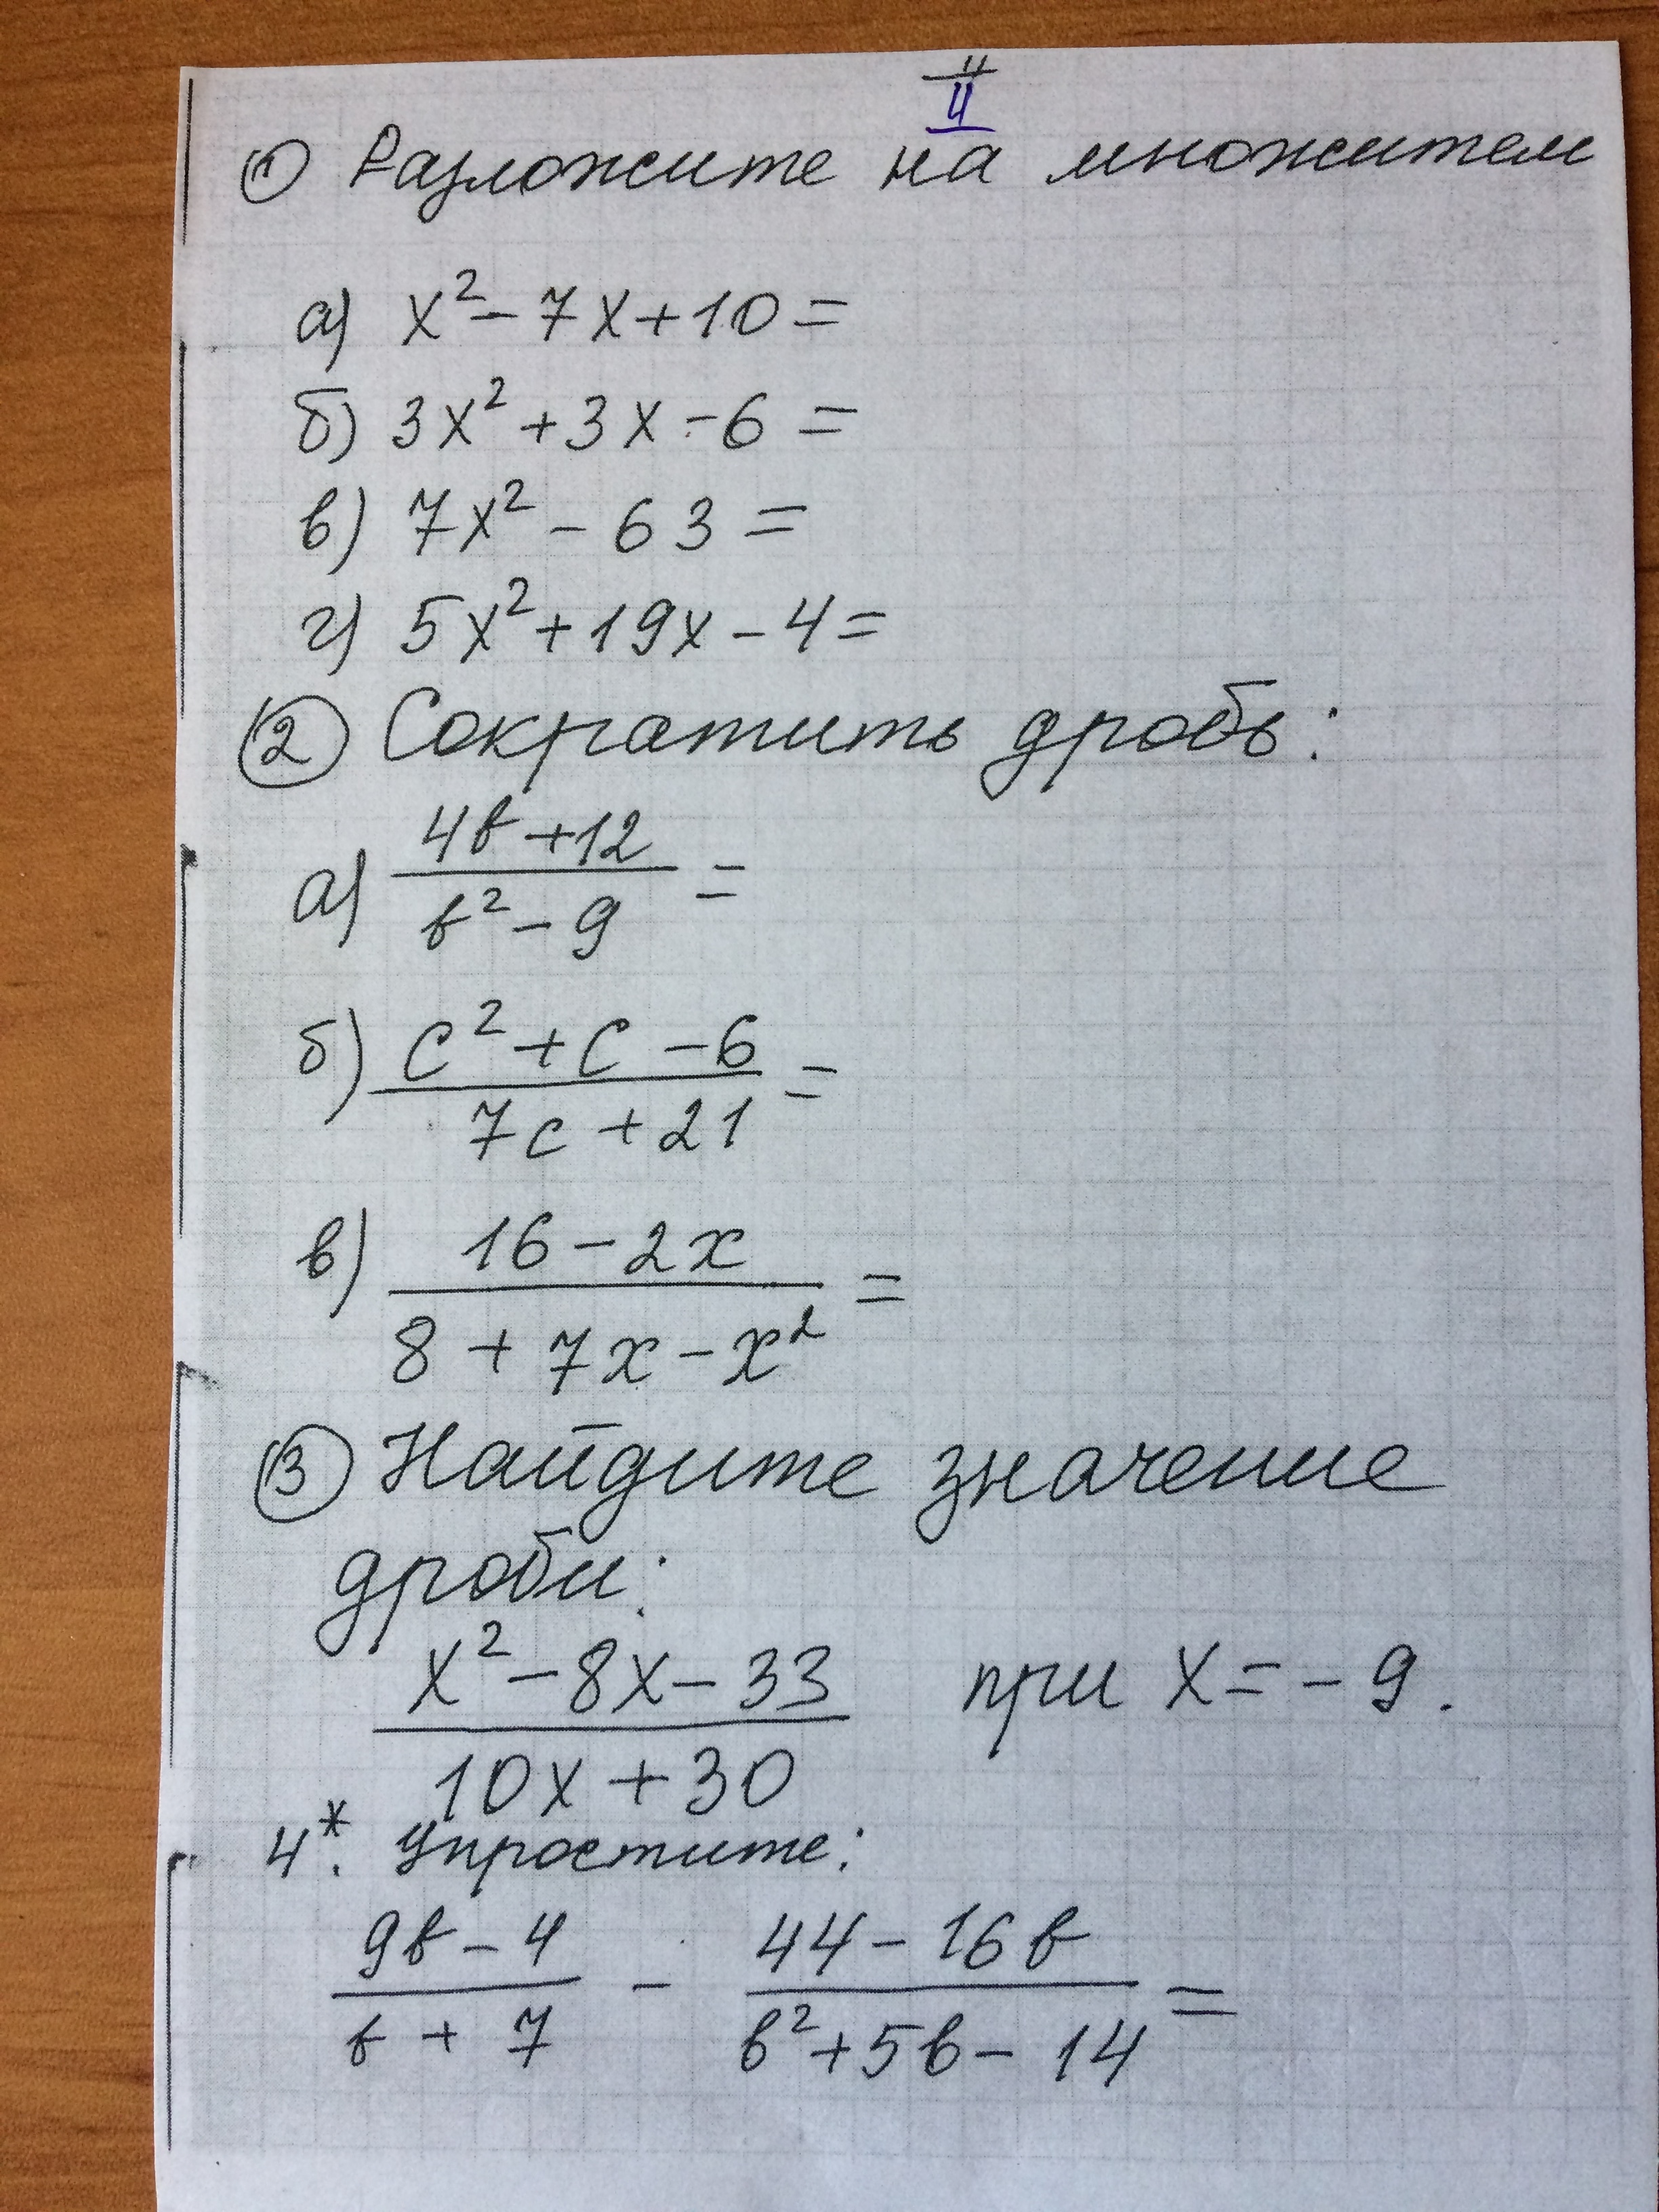 II
① Разложите на множители
а) x² - 7x + 10 =
б) 3x² + 3x - 6 =
в) 7x² - 63 =
г) 5x² + 19x - 4 =
② Сократить дробь:
а) (4b + 12)/(b² - 9) =
б) (c² + c - 6)/(7c + 21) =
в) (16 - 2x)/(8 + 7x - x²) =
③ Найдите значение
дроби:
(x² - 8x - 33)/(10x + 30) при x = -9.
4*. Упростите:
(9b - 4)/(b + 7) - (44 - 16b)/(b² + 5b - 14) =